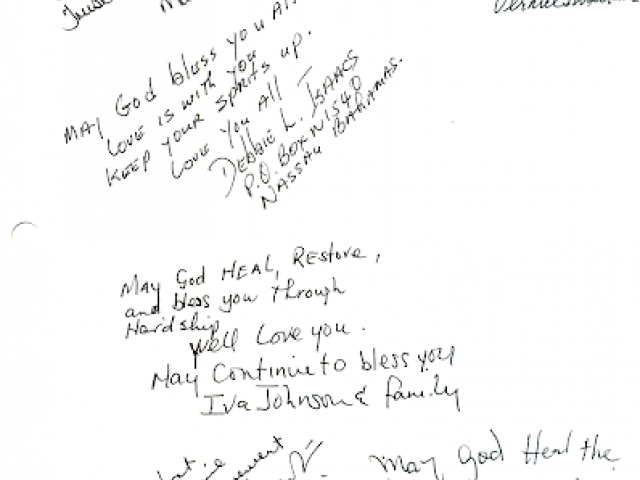 MAY God bless you All
Love is with you
KEEP YOUR SPRITS up.
Love You All
DEBBIE L. ISAACS
P.O. BOX N1540
NASSAU BAHAMAS.
May God HEAL, REstore,
and bless you through
Hardship
Well Love you.
May Continue to bless you
Iva Johnson & family
May God Heal the